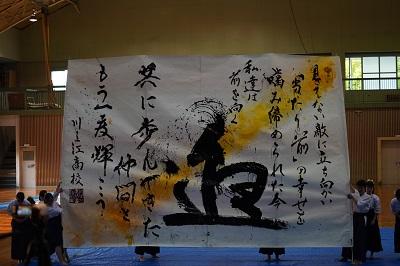 見えない敵に立ち向かい
「当たり前」の幸せを
噛み締められた今
私達は
前を向く
進
共に歩んできた
仲間と
もう一度輝こう
川之江高校